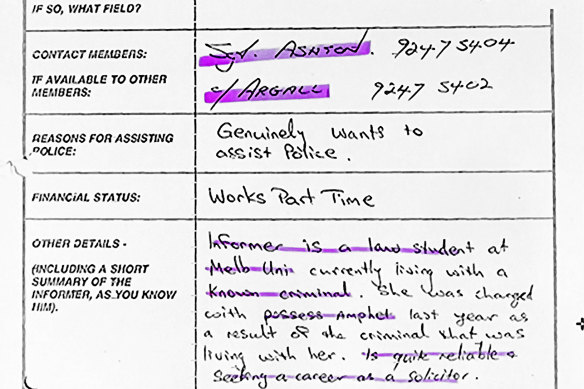 IF SO, WHAT FIELD?
CONTACT MEMBERS: Sgt. ASHTON. 9247 5404
IF AVAILABLE TO OTHER
MEMBERS: c/ ARGALL 9247 5402
REASONS FOR ASSISTING
POLICE: Genuinely wants to
assist Police.
FINANCIAL STATUS: Works Part Time
OTHER DETAILS -
(INCLUDING A SHORT
SUMMARY OF THE
INFORMER, AS YOU KNOW
HIM).
Informer is a law student at
Melb Uni currently living with a
known criminal. She was charged
with possess Amphet last year as
a result of the criminal that was
living with her. Is quite reliable &
seeking a career as a solicitor.